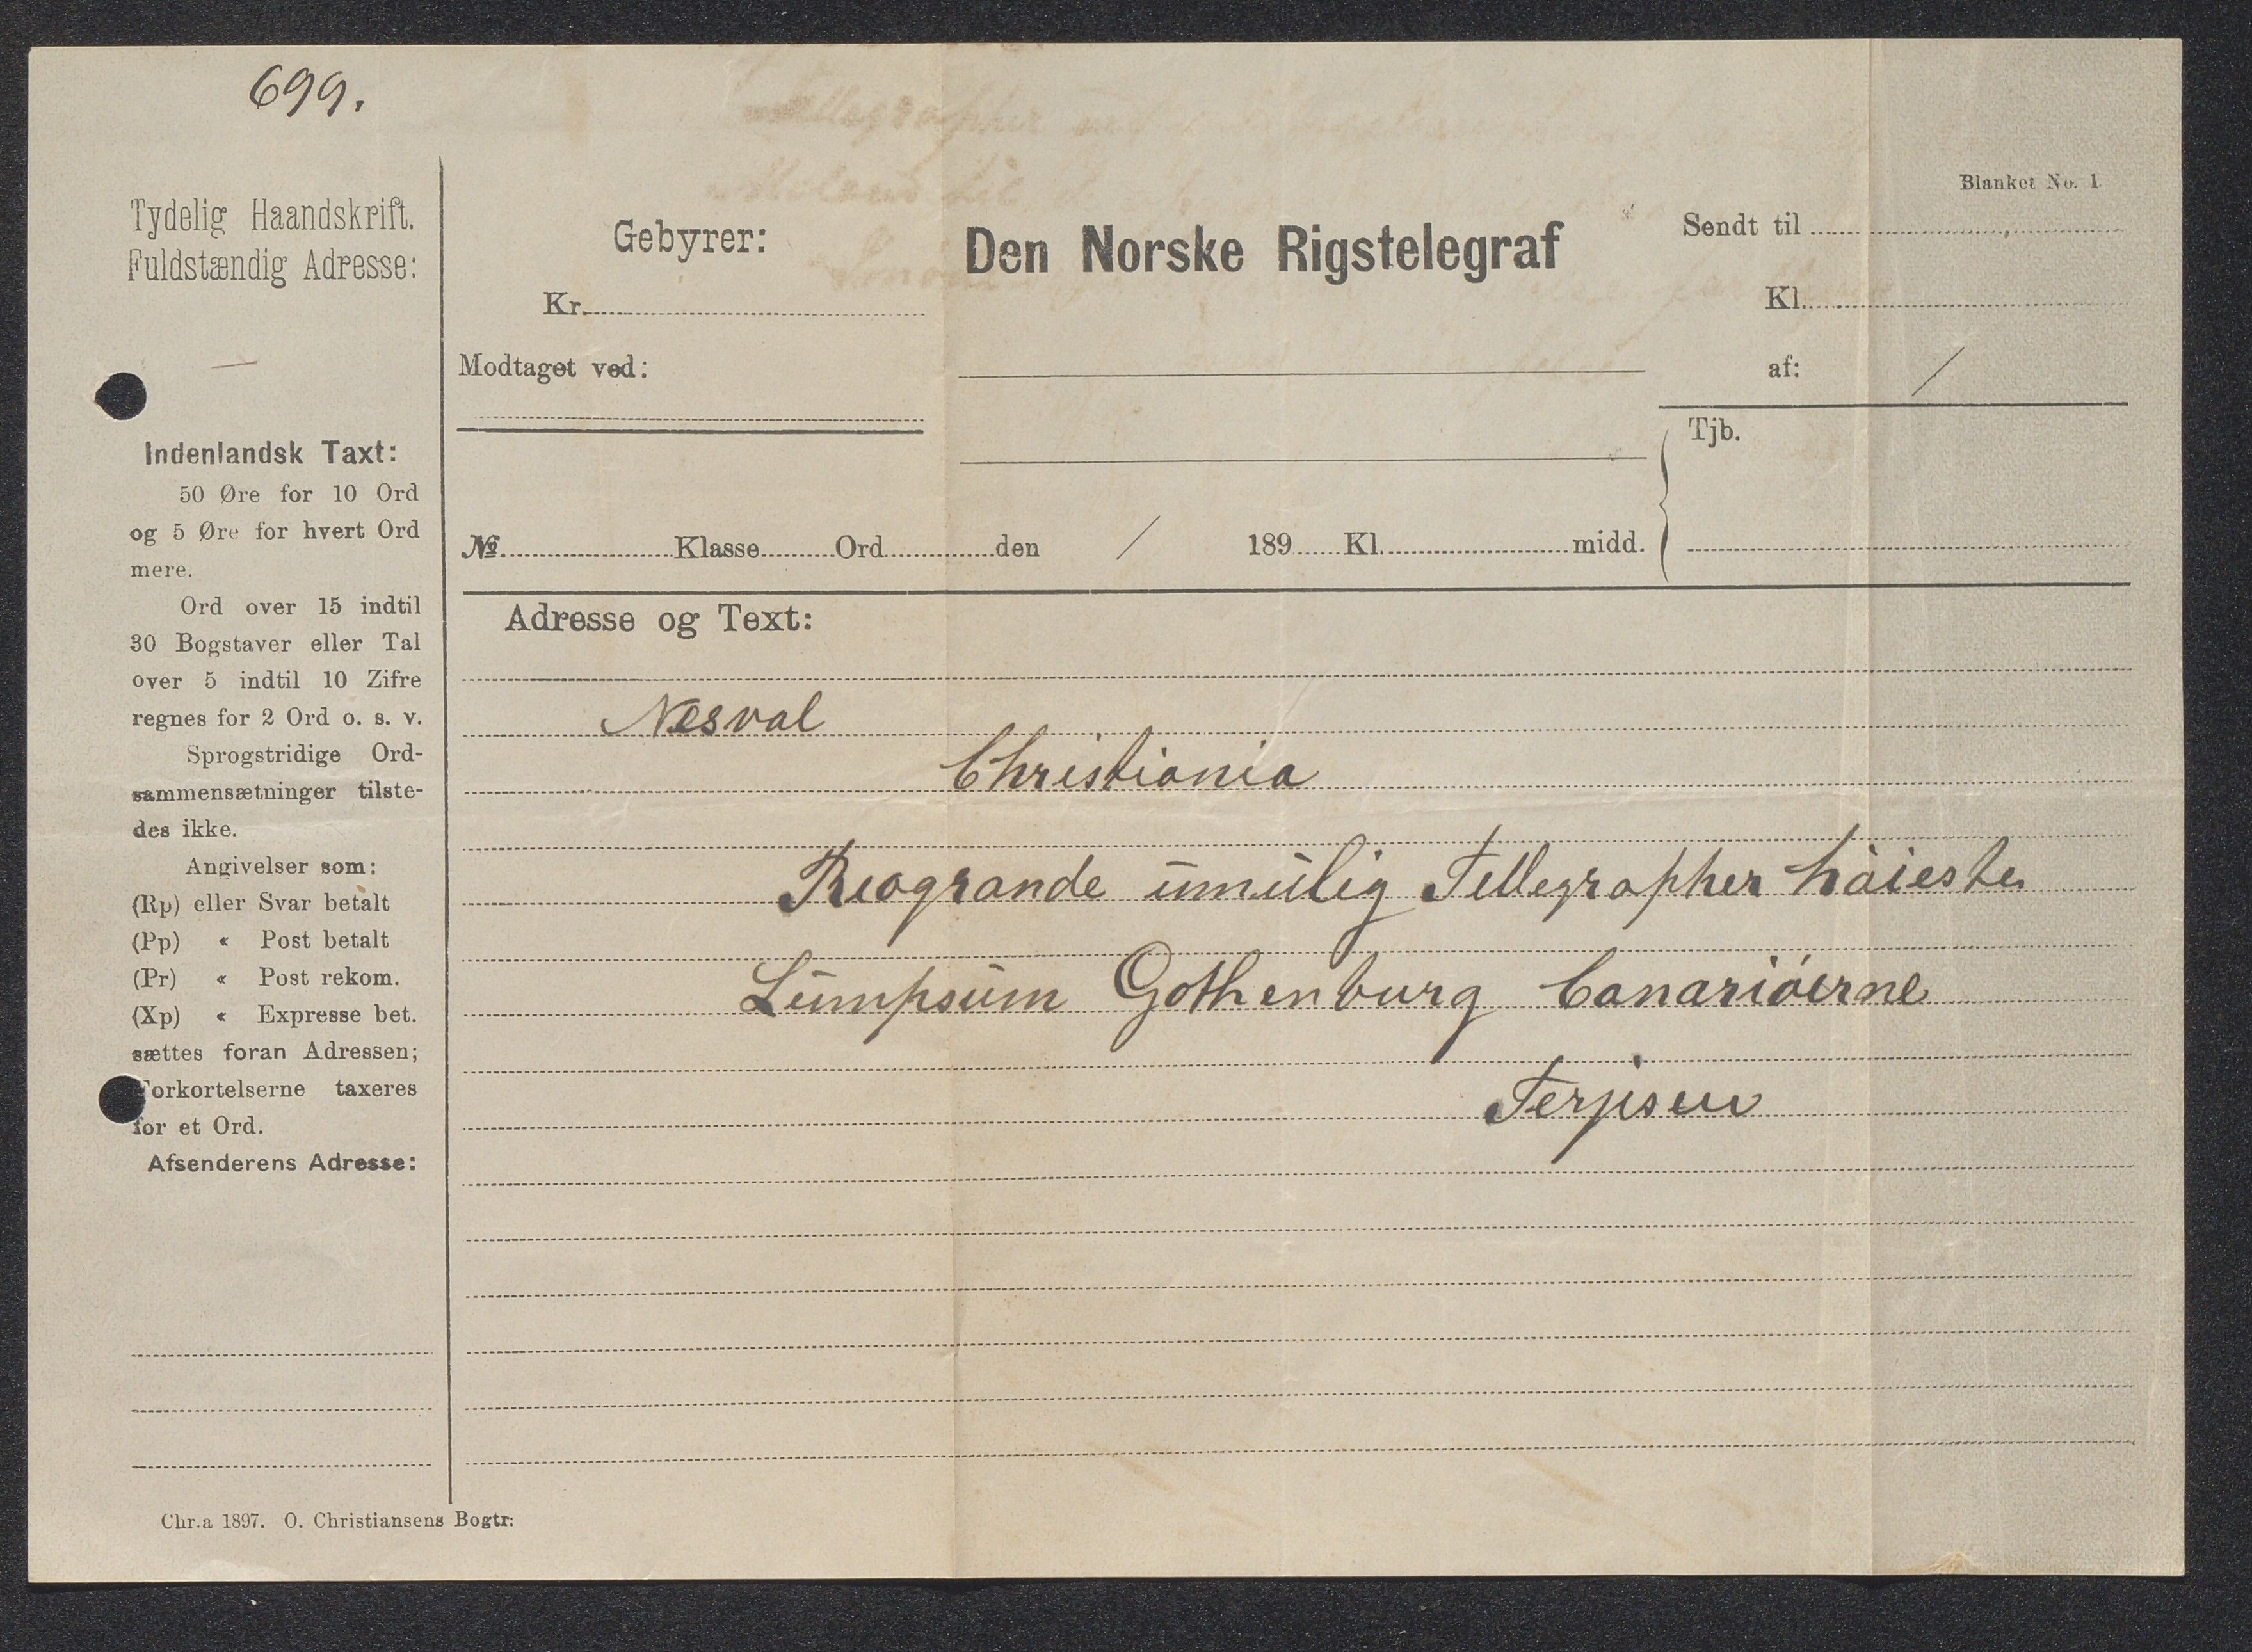 699.
Tydelig Haandskrift.
Fuldstændig Adresse:
Indenlandsk Taxt:
50 Øre for 10 Ord
og 5 Øre for hvert Ord
mere.
Ord over 15 indtil
30 Bogstaver eller Tal
over 5 indtil 10 Zifre
regnes for 2 Ord o. s. v.
Sprogstridige Ord-
sammensætninger tilste-
des ikke.
Angivelser som:
(Rp) eller Svar betalt
(Pp) « Post betalt
(Pr) « Post rekom.
(Xp) « Expresse bet.
sættes foran Adressen;
Forkortelserne taxeres
for et Ord.
Afsenderens Adresse:
Chr.a 1897. O. Christiansens Bogtr:
Gebyrer:
Kr.
Modtaget ved:
Den Norske Rigstelegraf
Blanket No. 1.
Sendt til
Kl.
af: /
Tjb.
No. Klasse Ord den / 189 Kl. midd.
Adresse og Text:
Nesval
Christiania
Riogrande umulig Tellegrapher høieste
Lumpsum Gothenburg Canariøerne
Terjisen